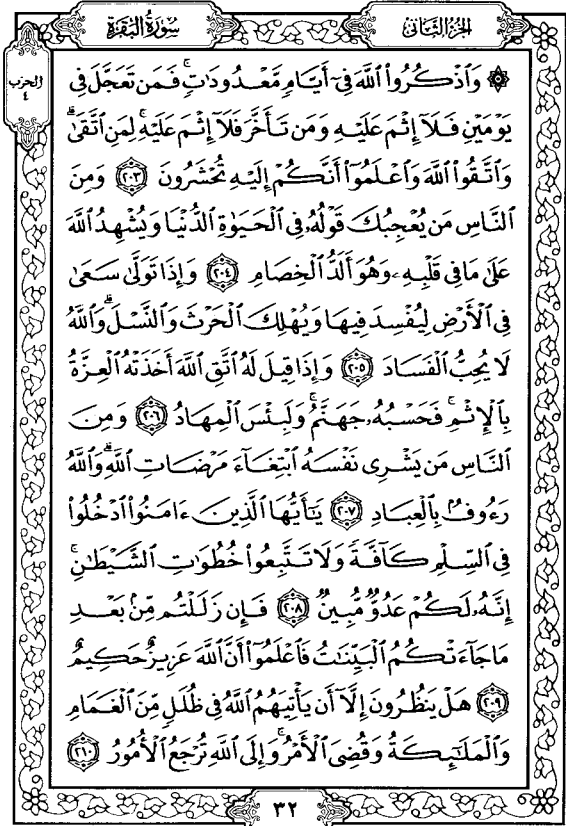 سورة البقرة
الجزء الثاني
الحزب
٤
۞ وَٱذْكُرُوا۟ ٱللَّهَ فِىٓ أَيَّامٍ مَّعْدُودَٰتٍ ۚ فَمَن تَعَجَّلَ فِى
يَوْمَيْنِ فَلَآ إِثْمَ عَلَيْهِ وَمَن تَأَخَّرَ فَلَآ إِثْمَ عَلَيْهِ ۚ لِمَنِ ٱتَّقَىٰ ۗ
وَٱتَّقُوا۟ ٱللَّهَ وَٱعْلَمُوٓا۟ أَنَّكُمْ إِلَيْهِ تُحْشَرُونَ ٢٠٣ وَمِنَ
ٱلنَّاسِ مَن يُعْجِبُكَ قَوْلُهُۥ فِى ٱلْحَيَوٰةِ ٱلدُّنْيَا وَيُشْهِدُ ٱللَّهَ
عَلَىٰ مَا فِى قَلْبِهِۦ وَهُوَ أَلَدُّ ٱلْخِصَامِ ٢٠٤ وَإِذَا تَوَلَّىٰ سَعَىٰ
فِى ٱلْأَرْضِ لِيُفْسِدَ فِيهَا وَيُهْلِكَ ٱلْحَرْثَ وَٱلنَّسْلَ ۗ وَٱللَّهُ
لَا يُحِبُّ ٱلْفَسَادَ ٢٠٥ وَإِذَا قِيلَ لَهُ ٱتَّقِ ٱللَّهَ أَخَذَتْهُ ٱلْعِزَّةُ
بِٱلْإِثْمِ ۚ فَحَسْبُهُۥ جَهَنَّمُ ۚ وَلَبِئْسَ ٱلْمِهَادُ ٢٠٦ وَمِنَ
ٱلنَّاسِ مَن يَشْرِى نَفْسَهُ ٱبْتِغَآءَ مَرْضَاتِ ٱللَّهِ ۗ وَٱللَّهُ
رَءُوفٌۢ بِٱلْعِبَادِ ٢٠٧ يَٰٓأَيُّهَا ٱلَّذِينَ ءَامَنُوا۟ ٱدْخُلُوا۟
فِى ٱلسِّلْمِ كَآفَّةً وَلَا تَتَّبِعُوا۟ خُطُوَٰتِ ٱلشَّيْطَٰنِ ۚ
إِنَّهُۥ لَكُمْ عَدُوٌّ مُّبِينٌ ٢٠٨ فَإِن زَلَلْتُم مِّنۢ بَعْدِ
مَا جَآءَتْكُمُ ٱلْبَيِّنَٰتُ فَٱعْلَمُوٓا۟ أَنَّ ٱللَّهَ عَزِيزٌ حَكِيمٌ
٢٠٩ هَلْ يَنظُرُونَ إِلَّآ أَن يَأْتِيَهُمُ ٱللَّهُ فِى ظُلَلٍ مِّنَ ٱلْغَمَامِ
وَٱلْمَلَٰٓئِكَةُ وَقُضِىَ ٱلْأَمْرُ ۚ وَإِلَى ٱللَّهِ تُرْجَعُ ٱلْأُمُورُ ٢١٠
٣٢